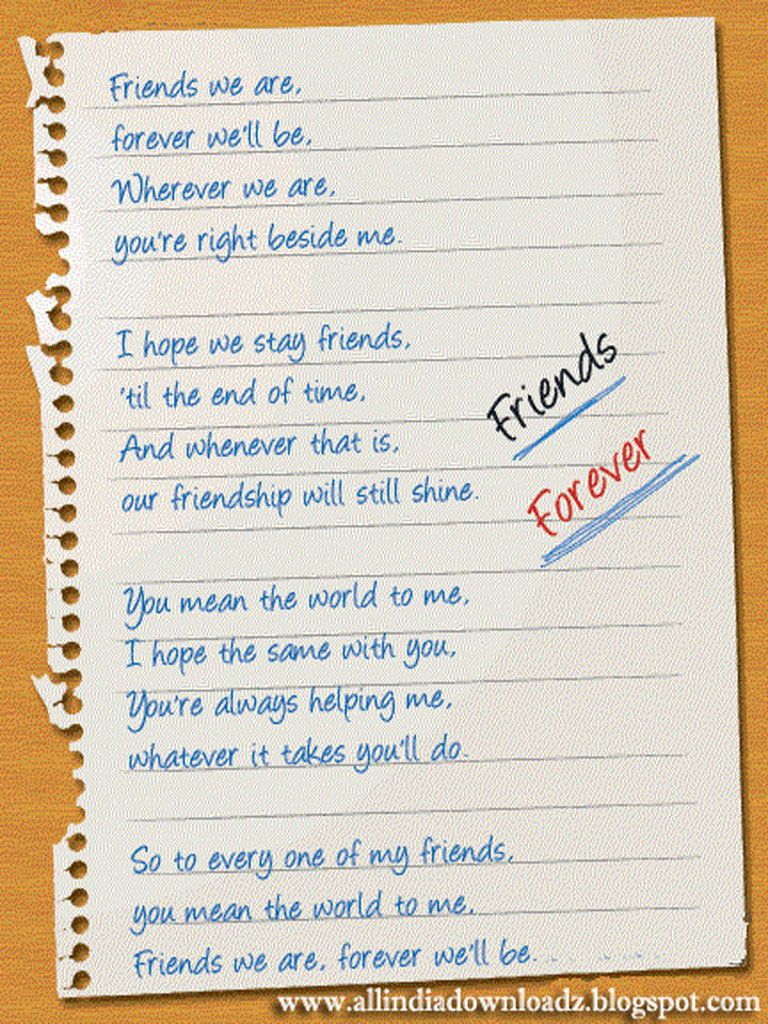 Friends we are,
forever we'll be,
Wherever we are,
you're right beside me.
I hope we stay friends,
'til the end of time,
And whenever that is,
our friendship will still shine.
Friends
Forever
You mean the world to me,
I hope the same with you,
You're always helping me,
whatever it takes you'll do.
So to every one of my friends,
you mean the world to me,
Friends we are, forever we'll be.......
www.allindiadownloadz.blogspot.com